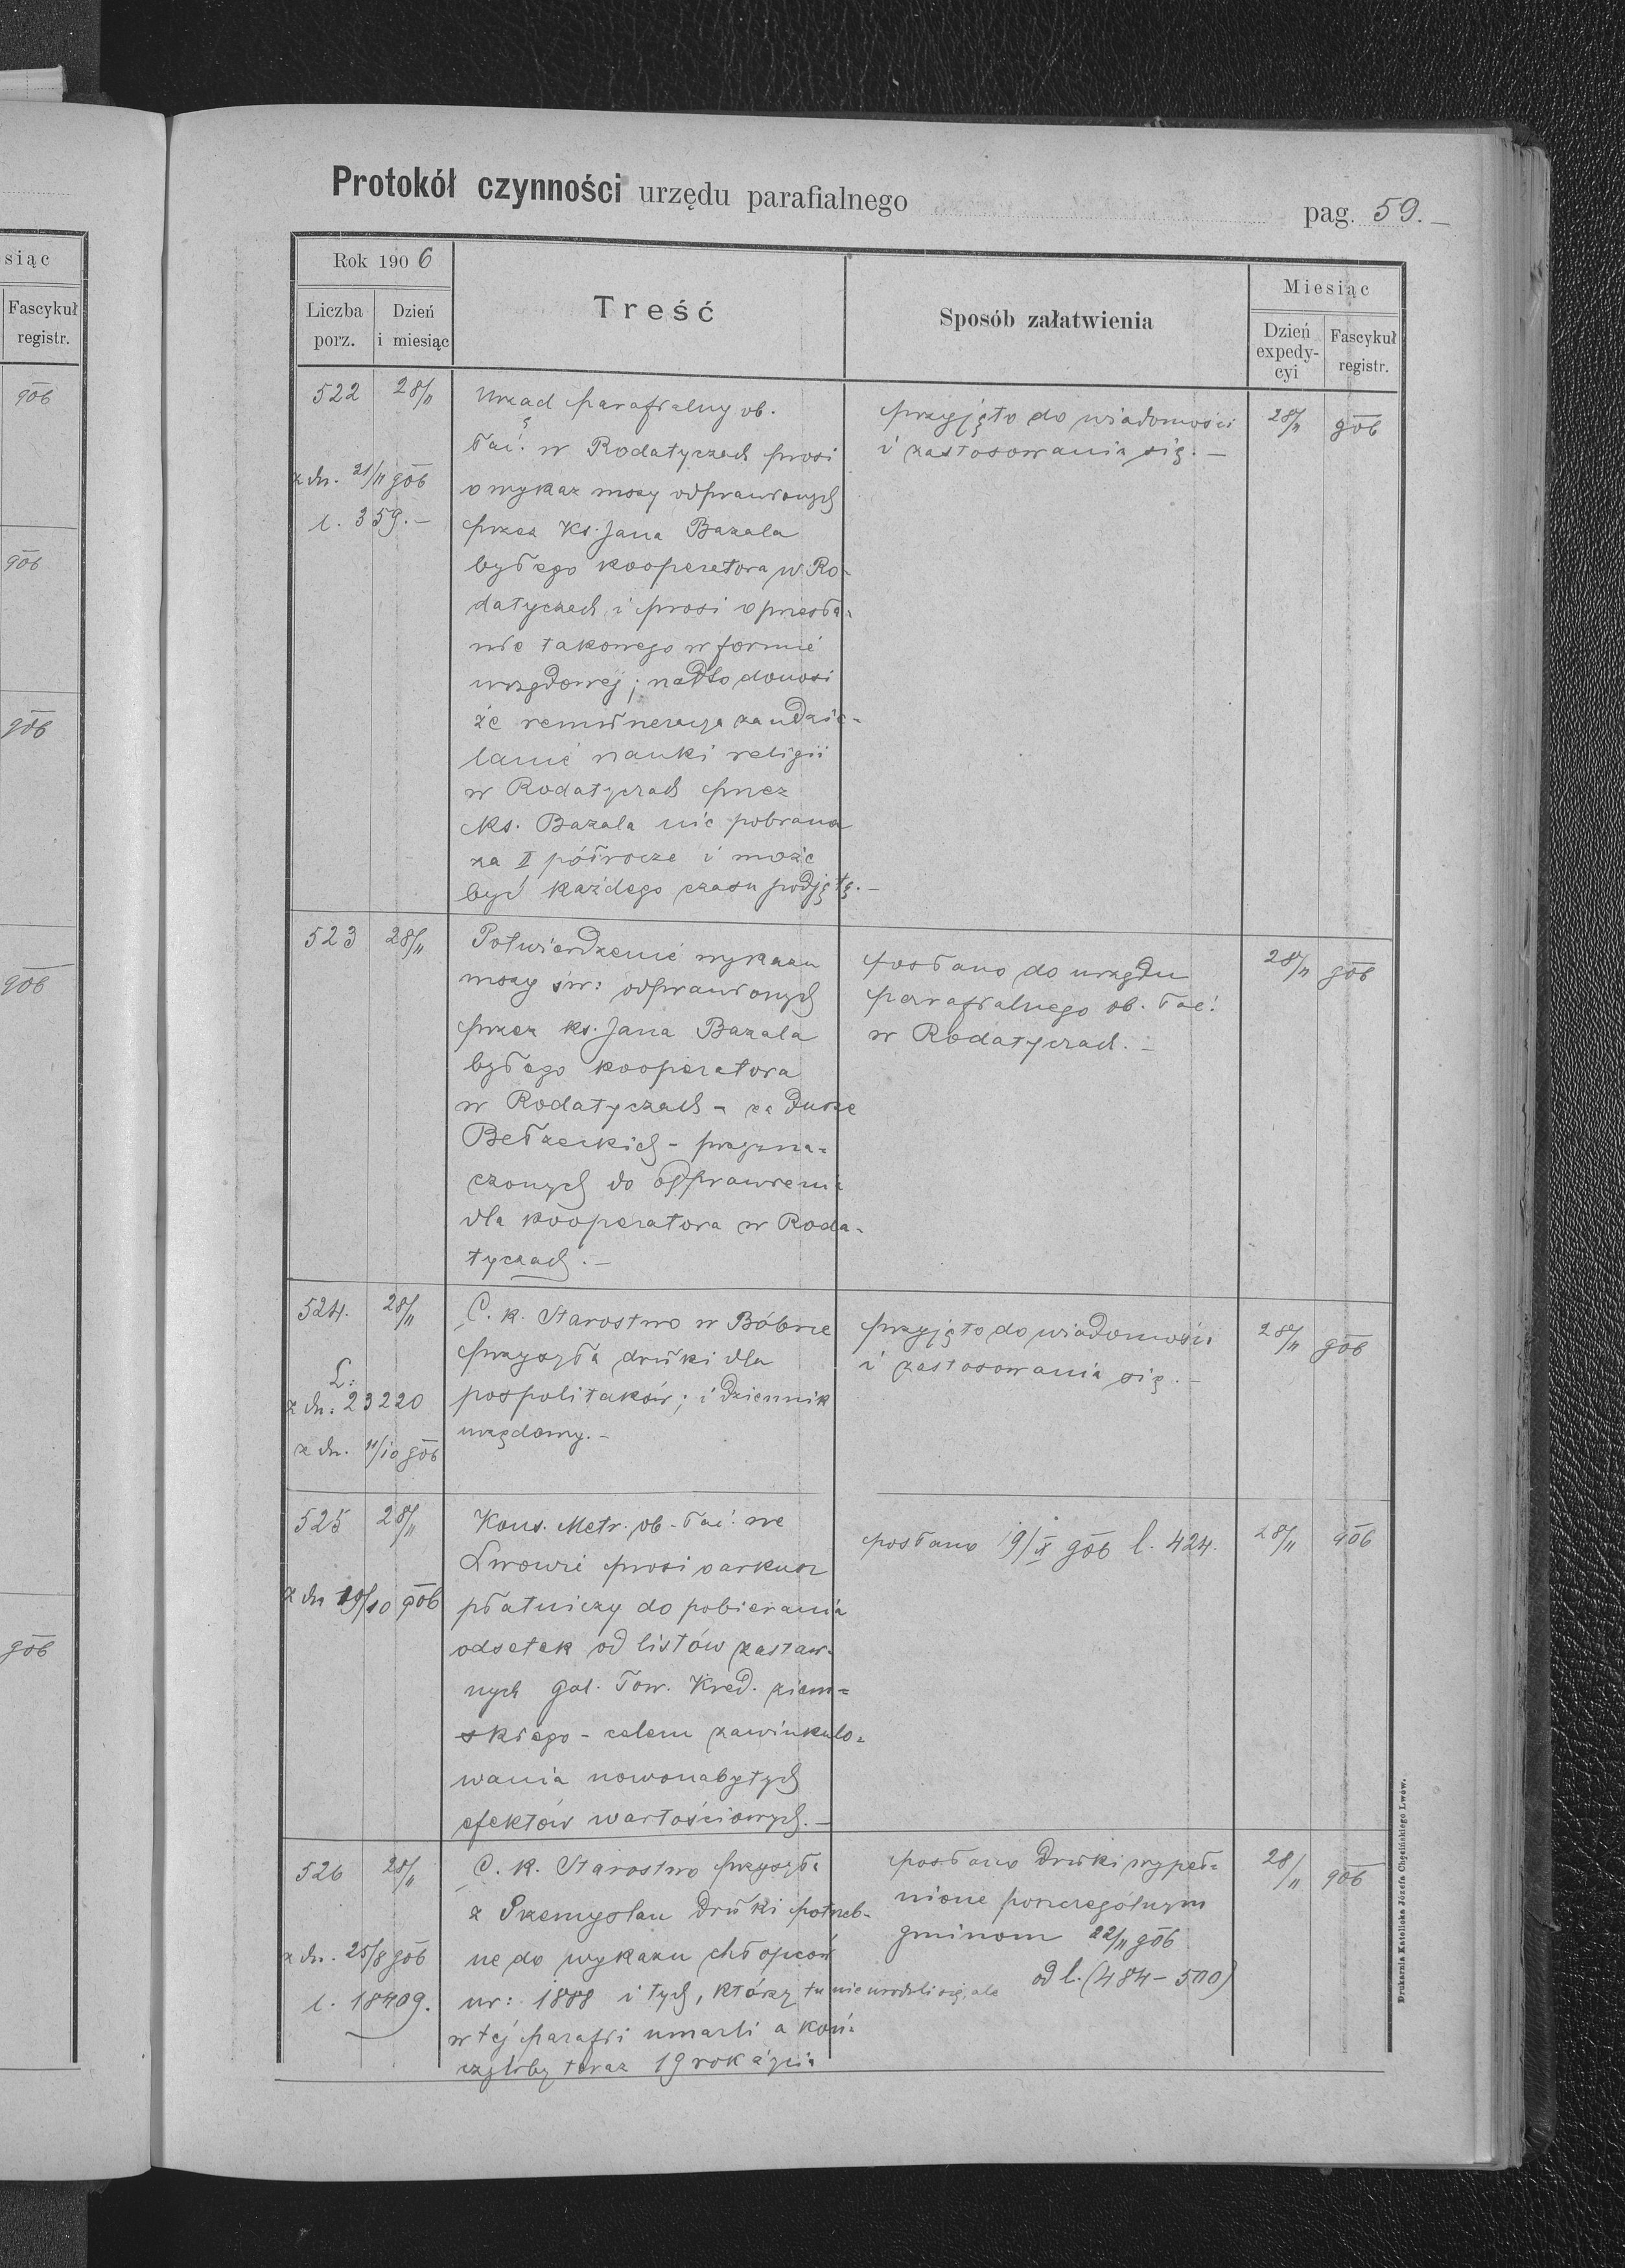 siąc
Fascykuł
registr.
906
906
906
906
906
Protokół czynności urzędu parafialnego
pag. 59.—
Rok 1906
Liczba porz.
Dzień i miesiąc
Treść
Sposób załatwienia
Miesiąc
Dzień expedy-cyi
Fascykuł registr.
522 28/11
z dn. 21/11 906
l. 359.—
Urząd parafialny ob.
łać. w Rodatyczach prosi
o wykaz mszy odprawionych
przez Ks. Jana Bazala
byłego kooperatora w Ro-
datyczach i prosi o przesła-
nie takowego w formie
urzędowej; nadto donosi
że remuneracya za udzie-
lanie nauki religii
w Rodatyczach przez
Ks. Bazala nie pobrana
za II półrocze i może
być każdego czasu podjętą.—
przyjęto do wiadomości
i zastosowania się.—
28/11 906
523 28/11
Potwierdzenie wykazu
mszy św: odprawionych
przez ks. Jana Bazala
byłego kooperatora
w Rodatyczach - za dusze
Bełzeckich - przezna-
czonych do odprawienia
dla kooperatora w Roda-
tyczach.—
posłano do urzędu
parafialnego ob. łać.
w Rodatyczach.—
28/11 906
524. 28/11
L:
z dn: 23220
z dn. 11/10 906
C. k. Starostwo w Bóbrce
przysyła druki dla
pospolitaków; i dziennik
urzędowy.—
przyjęto do wiadomości
i zastosowania się.—
28/11 906
525 28/11
z dn 19/10 906
Kons. Metr. ob. łać. we
Lwowie prosi o arkusz
płatniczy do pobierania
odsetek od listów zastaw-
nych gal. Tow. Kred. ziem-
skiego - celem zawinkulo-
wania nowonabytych
efektów wartościowych.—
posłano 19/X 906 l. 424.
28/11 906
526 28/11
z dn. 25/8 906
l. 18409.
C. k. Starostwo przysyła
z Przemyślan druki potrzeb-
ne do wykazu chłopców
ur: 1888 i tych, którzy tu nie urodzili się, ale
w tej parafii umarli a koń-
czyliby teraz 19 rok życia
posłano druki wypeł-
nione poszczególnym
gminom 22/11 906
od l. (484–500)
28/11 906
Drukarnia Katolicka Józefa Chęcińskiego Lwów.